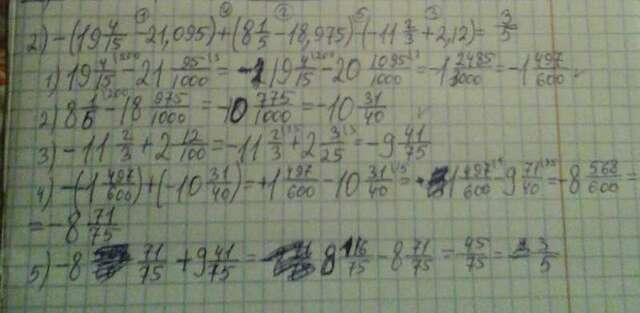 2) -(19 4/15 - 21,095) + (8 1/5 - 18,975) - (-11 2/3 + 2,12) = 3/5
1) 19 4/15 - 21 95/1000 = 19 4/15 - 20 1095/1000 = -1 2485/3000 = -1 497/600
2) 8 1/5 - 18 975/1000 = -10 775/1000 = -10 31/40
3) -11 2/3 + 2 12/100 = -11 2/3 + 2 3/25 = -9 41/75
4) -(-1 497/600) + (-10 31/40) = +1 497/600 - 10 31/40 = 1 497/600 - 9 71/40 = -8 568/600 =
= -8 71/75
5) -8 71/75 + 9 41/75 = 8 116/75 - 8 71/75 = 45/75 = 3/5